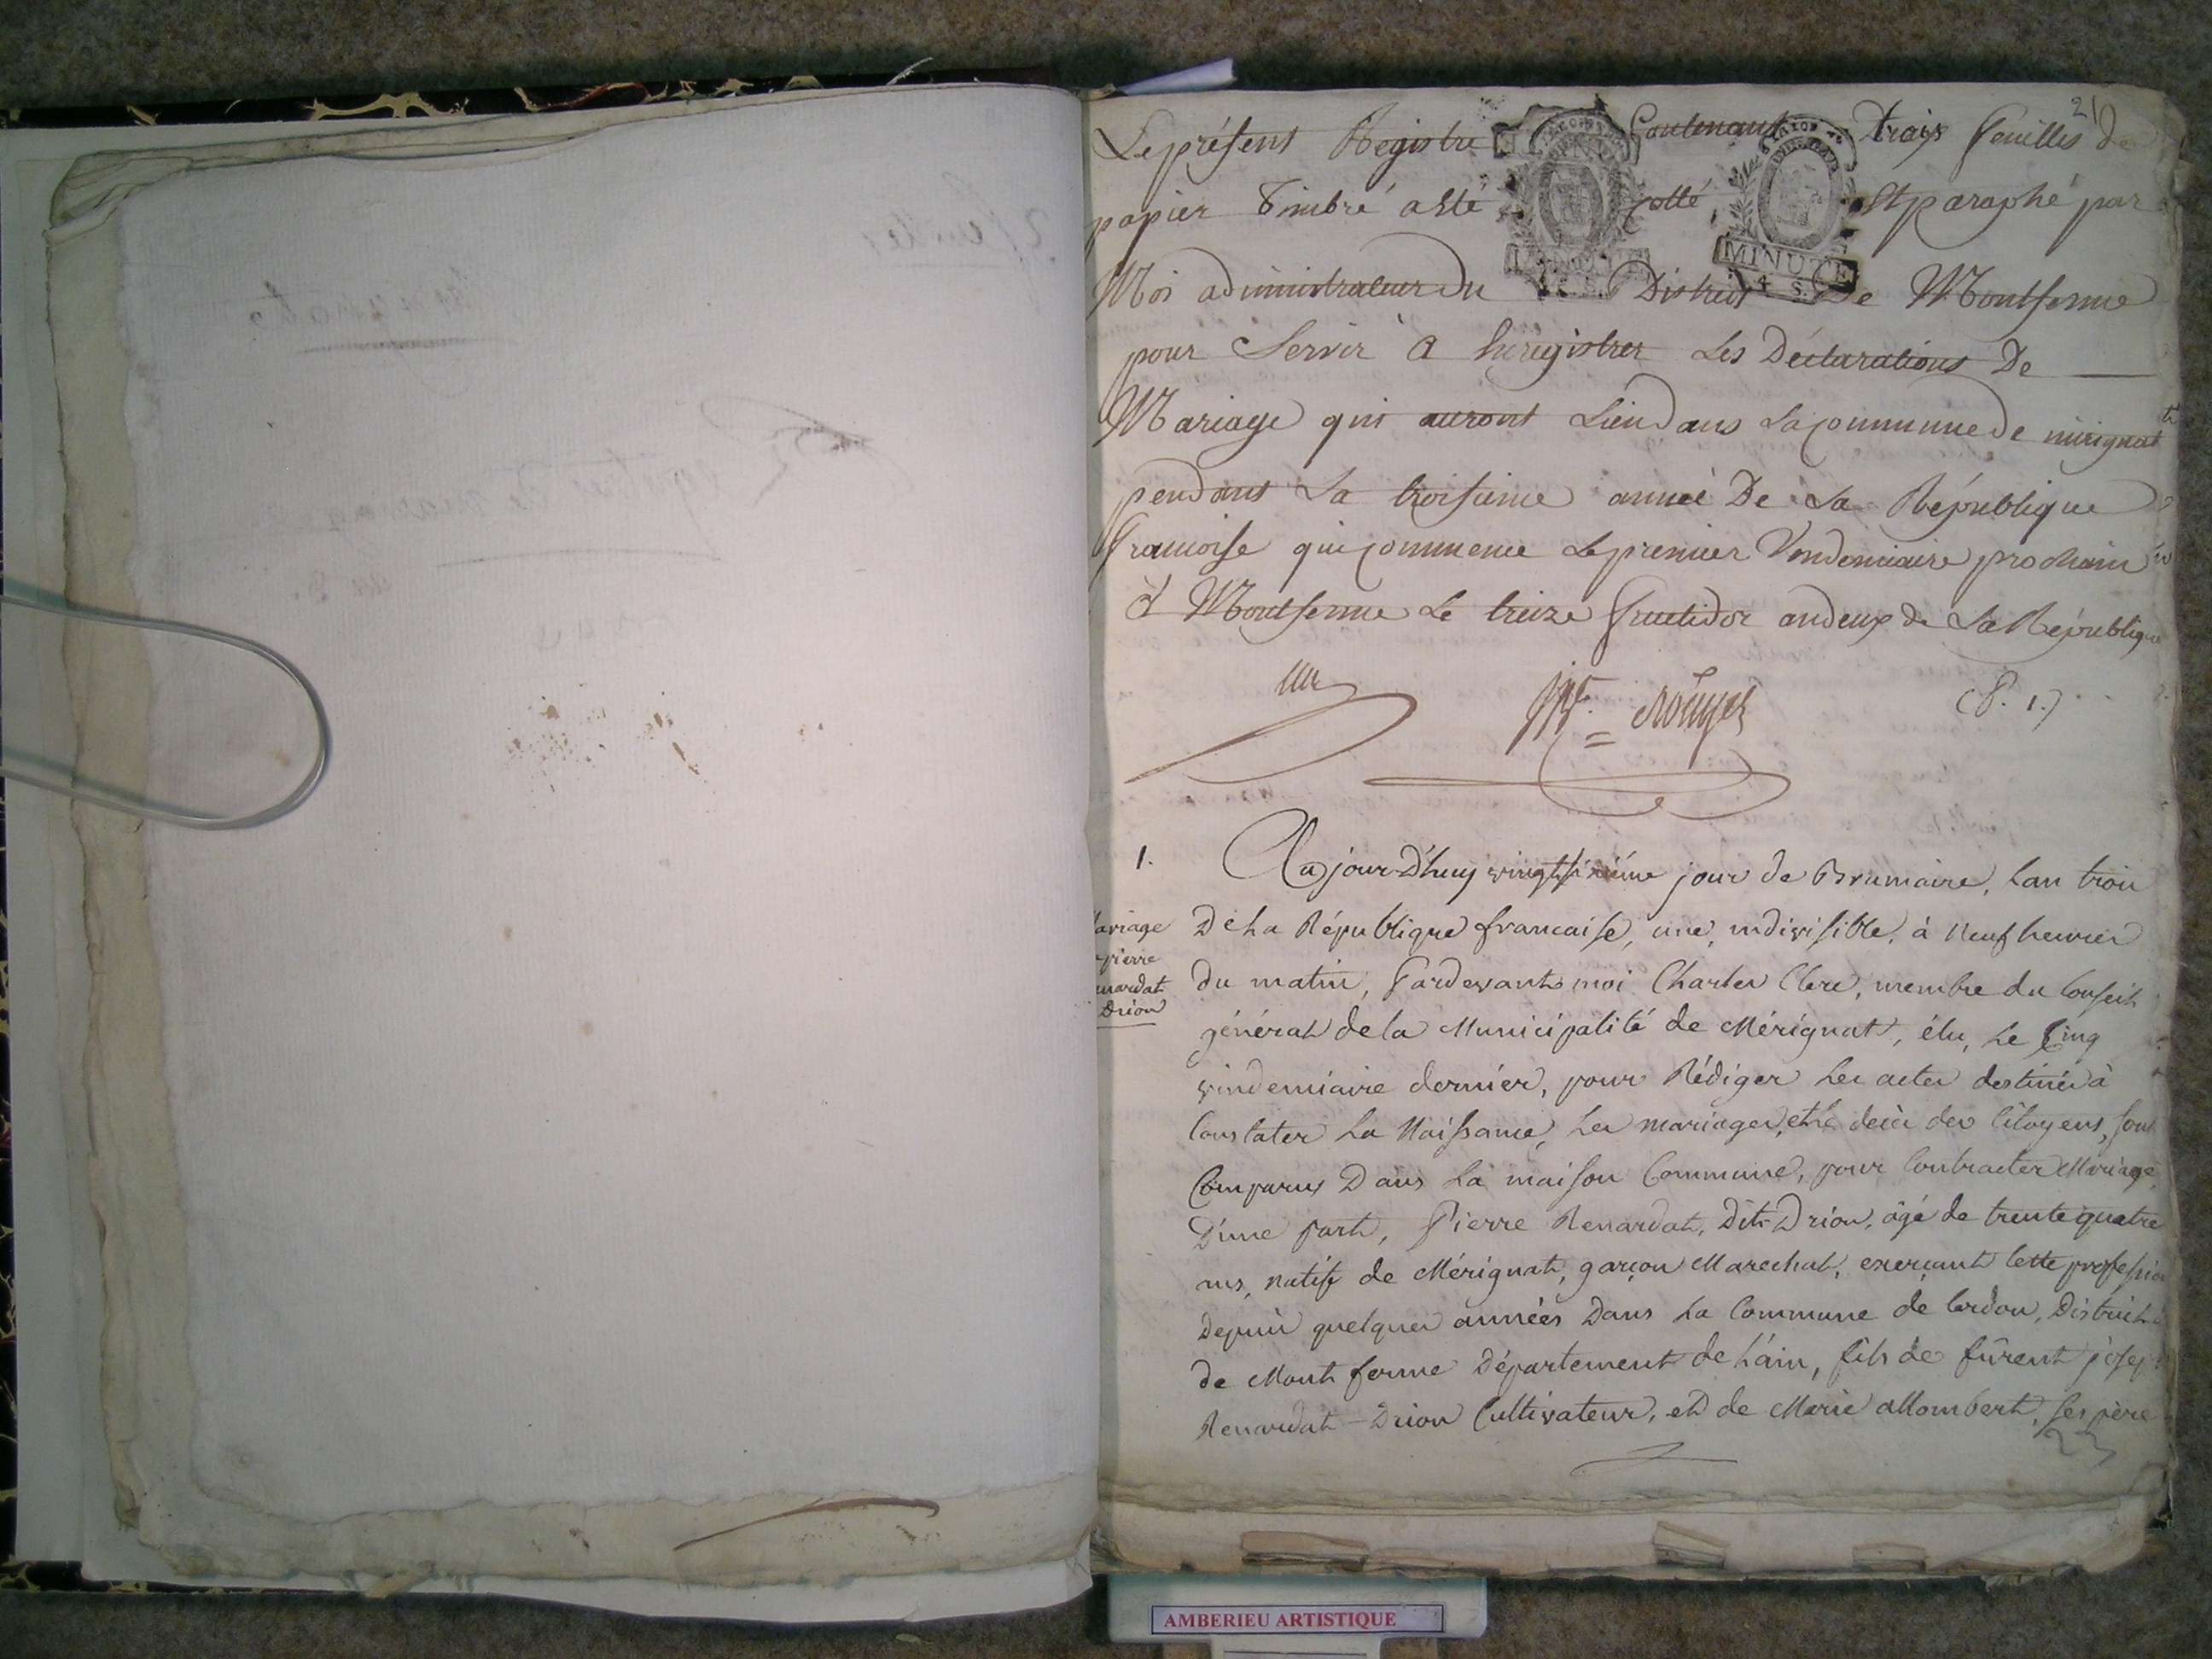 21
Le présent Registre Contenant trois feuilles de
papier timbré a été cotté, et paraphé par
Moi administrateur du District de Montferme
pour Servir a Enregistrer Les Déclarations De
Mariage qui auront Lieu dans La Commune de mérignat
pendant La troisieme année De La République
francoise qui commence Le premier Vendemiaire prochain
à Montferme Le treize fructidor an deux de La République
MINUTE
4 S.
un
Rouyer
(P. 1.)
1.
ariage
pierre
nardat
Drion
Aujourd'huy vingtsixiéme jour de Brumaire, Lan trois
De La République francaise, une, indivisible, à Neuf heures
du matin, Pardevant moi Charles Clerc, membre du Conseil
général de la Municipalité de Mérignat, élu, Le Cinq
vindemiaire dernier, pour Rédiger Les actes destinés à
Constater La Naissance, Les mariages, et le décès des Citoyens, sont
Comparus Dans La maison Commune, pour Contracter Mariage,
D'une part, Pierre Renardat, Dit Drion, âgé de trente quatre
ans, natif de Mérignat, garçon Marechal, exerçant Cette profession
Depuis quelques années Dans La Commune de Cerdon, District
de Mont ferme Département de L'ain, fils de fûrent josep
Renardat-Drion Cultivateur, et de Marie allombert, ses père
23
AMBERIEU ARTISTIQUE